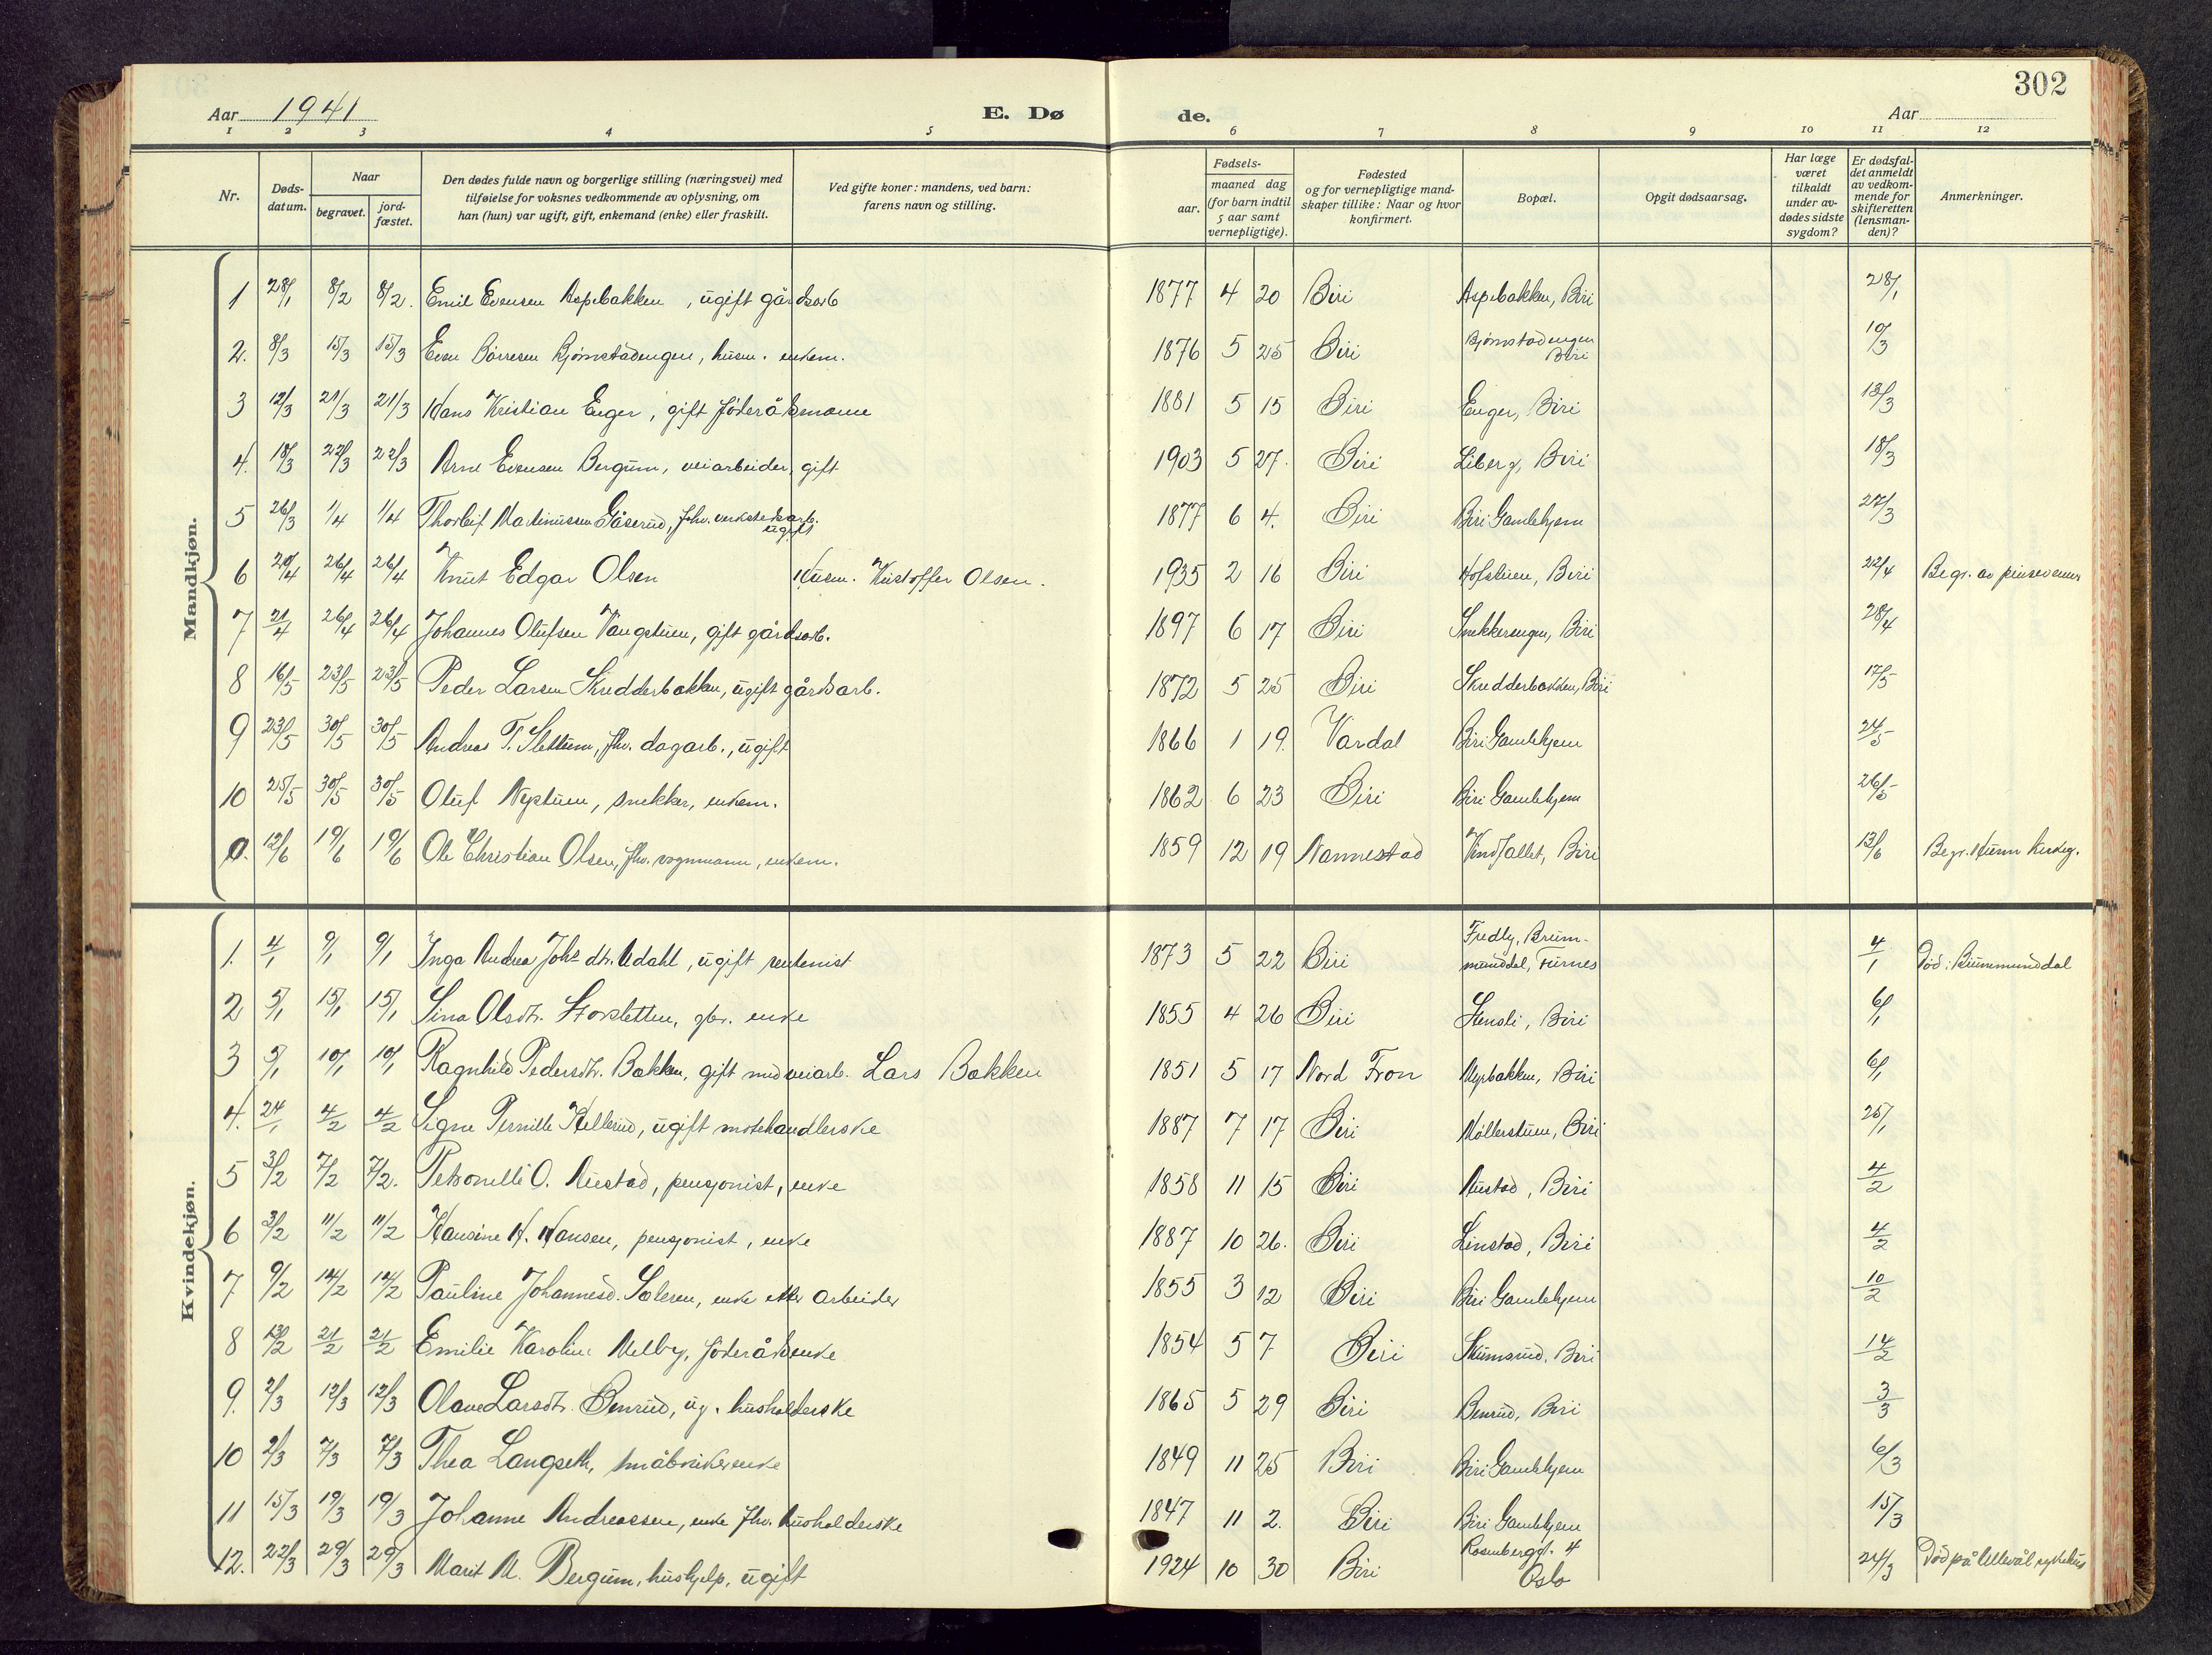 302
Aar 1941
E. Døde.
Aar
1 2 3 4 5 6 7 8 9 10 11 12
Nr.
Døds-datum.
Naar
begravet.
jord-fæstet.
Den dødes fulde navn og borgerlige stilling (næringsvei) med
tilføielse for voksnes vedkommende av oplysning, om
han (hun) var ugift, gift, enkemand (enke) eller fraskilt.
Ved gifte koner: mandens, ved barn:
farens navn og stilling.
Fødsels-
aar.
maaned dag
(for barn indtil
5 aar samt
vernepligtige).
Fødested
og for vernepligtige mand-
skaper tillike: Naar og hvor
konfirmert.
Bopæl.
Opgit dødsaarsag.
Har læge
været
tilkaldt
under av-
dødes sidste
sygdom?
Er dødsfal-
det anmeldt
av vedkom-
mende for
skifteretten
(lensman-
den)?
Anmerkninger.
Mandkjøn.
1 28/1 8/2 8/2. Emil Evensen Aspebakken, ugift gårdsarb 1877 4 20 Biri Aspebakken, Biri 28/1
2. 8/3 15/3 15/3 Even Børresen Bjørnstadengen, husm. enkem. 1876 5 25 Biri Bjørnstadengen Biri 10/3
3 12/3 21/3 21/3 Hans Kristian Enger, gift føderåksmann 1881 5 15 Biri Enger, Biri 13/3
4. 18/3 22/3 22/3 Arne Evensen Bergum, veiarbeider, gift 1903 5 27. Biri Liberg, Biri 18/3
5 26/3 1/4 1/4 Thorleif Martinussen Gåserud, fhv. verkstedsarb. ugift 1877 6 4. Biri Biri Gamlehjem 27/3
6 20/4 26/4 26/4 Knut Edgar Olsen Husm. Kristoffer Olsen. 1935 2 16 Biri Hofstuen, Biri 22/4 Begr. av pinsevenner
7 21/4 26/4 26/4 Johannes Olufsen Vangstuen, gift gårdsarb. 1897 6 17 Biri Snekkerengen, Biri 28/4
8 16/5 23/5 23/5 Peder Larsen Skredderbakken, ugift gårdsarb. 1872 5 25 Biri Skredderbakken, Biri 17/5
9 23/5 30/5 30/5 Andreas T. Slettum, fhv. dagarb., ugift 1866 1 19. Vardal Biri Gamlehjem 24/5
10 25/5 30/5 30/5 Oluf Nystuen, snekker, enkem. 1862 6 23 Biri Biri Gamlehjem 26/5
0. 12/6 19/6 19/6 Ole Christian Olsen, fhv. vognmann, enkem. 1859 12 19 Nannestad Vindfallet, Biri 13/6 Begr. Hunn kirkeg.
Kvindekjøn.
1. 4/1 9/1 9/1 Inga Andrea Johs dtr. Udahl, ugift rentenist 1873 5 22 Biri Fredly, Brum-munddal, Furnes 4/1 Død: Brummunddal
2 5/1 15/1 15/1 Sina Olsdtr. Storsletten, gbr. enke 1855 4 26 Biri Stensli, Biri 6/1
3 5/1 10/1 10/1 Ragnhild Pedersdtr. Bakken, gift med veiarb. Lars Bakken 1851 5 17 Nord Fron Myrbakken, Biri 6/1
4. 24/1 4/2 4/2 Signe Pernille Hellerud, ugift motehandlerske 1887 7 17 Biri Møllerstuen, Biri 25/1
5 3/2 7/2 7/2. Petronelle O. Austad, pensjonist, enke 1858 11 15 Biri Austad, Biri 4/2
6 3/2 11/2 11/2 Hansine H. Hansen, pensjonist, enke 1887 10 26. Biri Linstad, Biri 4/2
7 9/2 14/2 14/2 Pauline Johannesd. Sæteren, enke etter arbeider 1855 3 12 Biri Biri Gamlehjem 10/2
8 13/2 21/2 21/2 Emilie Karoline Melby, føderåksenke 1854 5 7 Biri Skumsrud, Biri 14/2
9. 2/3 12/3 12/3 Olave Larsdtr. Benrud, ug. husholderske 1865 5 29 Biri Benrud, Biri 3/3
10 2/3 7/3 7/3 Thea Langseth, småbrukerenke 1849 11 25 Biri Biri Gamlehjem 6/3
11 15/3 19/3 19/3 Johanne Andreassen, enke fhv. husholderske 1847 11 2. Biri Biri Gamlehjem 15/3
12. 22/3 29/3 29/3 Marit M. Bergum, hushjelp, ugift 1924 10 30 Biri Rosenberggt. 4 Oslo 24/3 Død på Ullevål sykehus